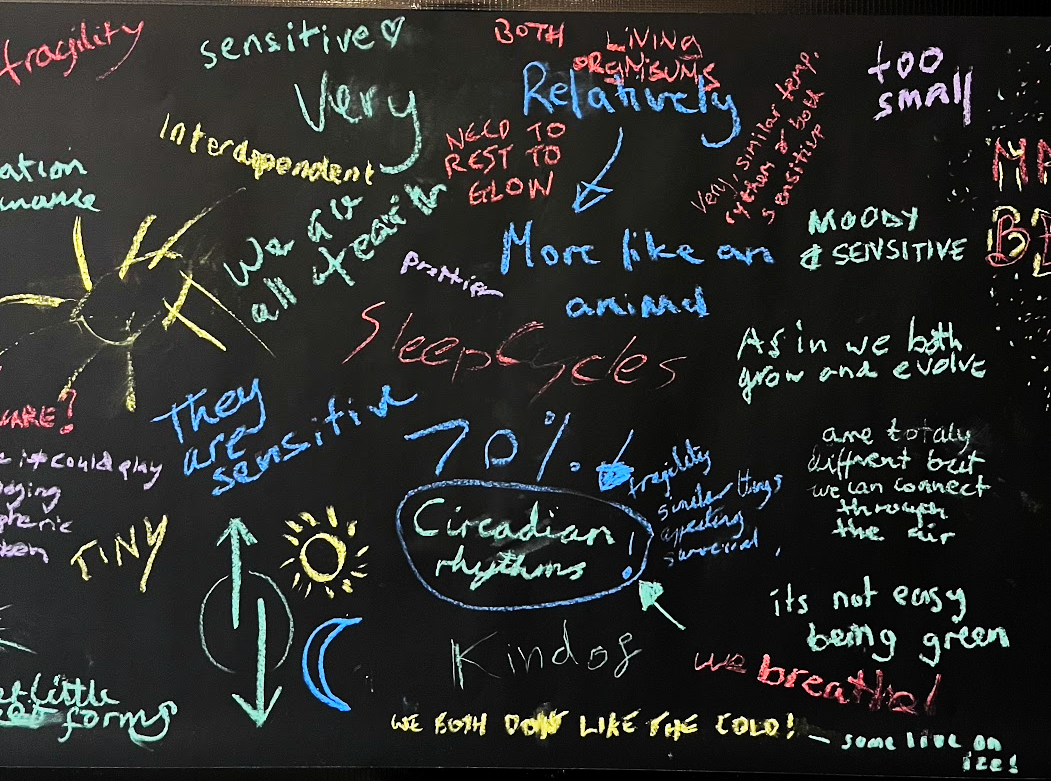 fragility
sensitive
BOTH
LIVING
ORGANISUMS
too
small
Very
Relatively
Interdependent
NEED TO
REST TO
GLOW
Very, similar temp.
rythem & both
sensitive
ation
MOODY
& SENSITIVE
We are
all
prettier
More like an
animal
Sleep Cycles
As in we both
grow and evolve
They
are
sensitive
WARE?
it could play
70%.
fragility
similar things
affecting
survival.
are totaly
diffrent but
we can connect
through
the air
TINY
Circadian
rhythms!
its not easy
being green
Kindof
we breathe!
little
forms
WE BOTH DON'T LIKE THE COLD!
— some live on
ice!